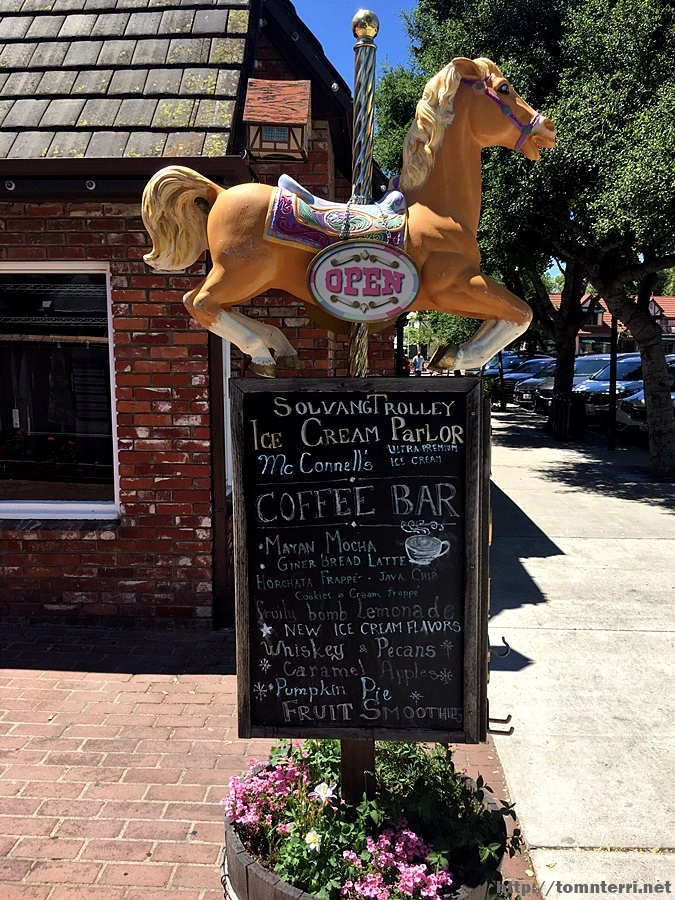 OPEN
SOLVANG TROLLEY
ICE CREAM PARLOR
Mc Connell's ULTRA PREMIUM
ICE CREAM
COFFEE BAR
• MAYAN MOCHA
• GINER BREAD LATTE
HORCHATA FRAPPÉ • JAVA CHIP
COOKIES & Cream frappé
fruity bomb Lemonade
NEW ICE CREAM FLAVORS
Whiskey & Pecans
Caramel Apples
Pumpkin Pie
FRUIT SMOOTHIES
http://tomnterri.net